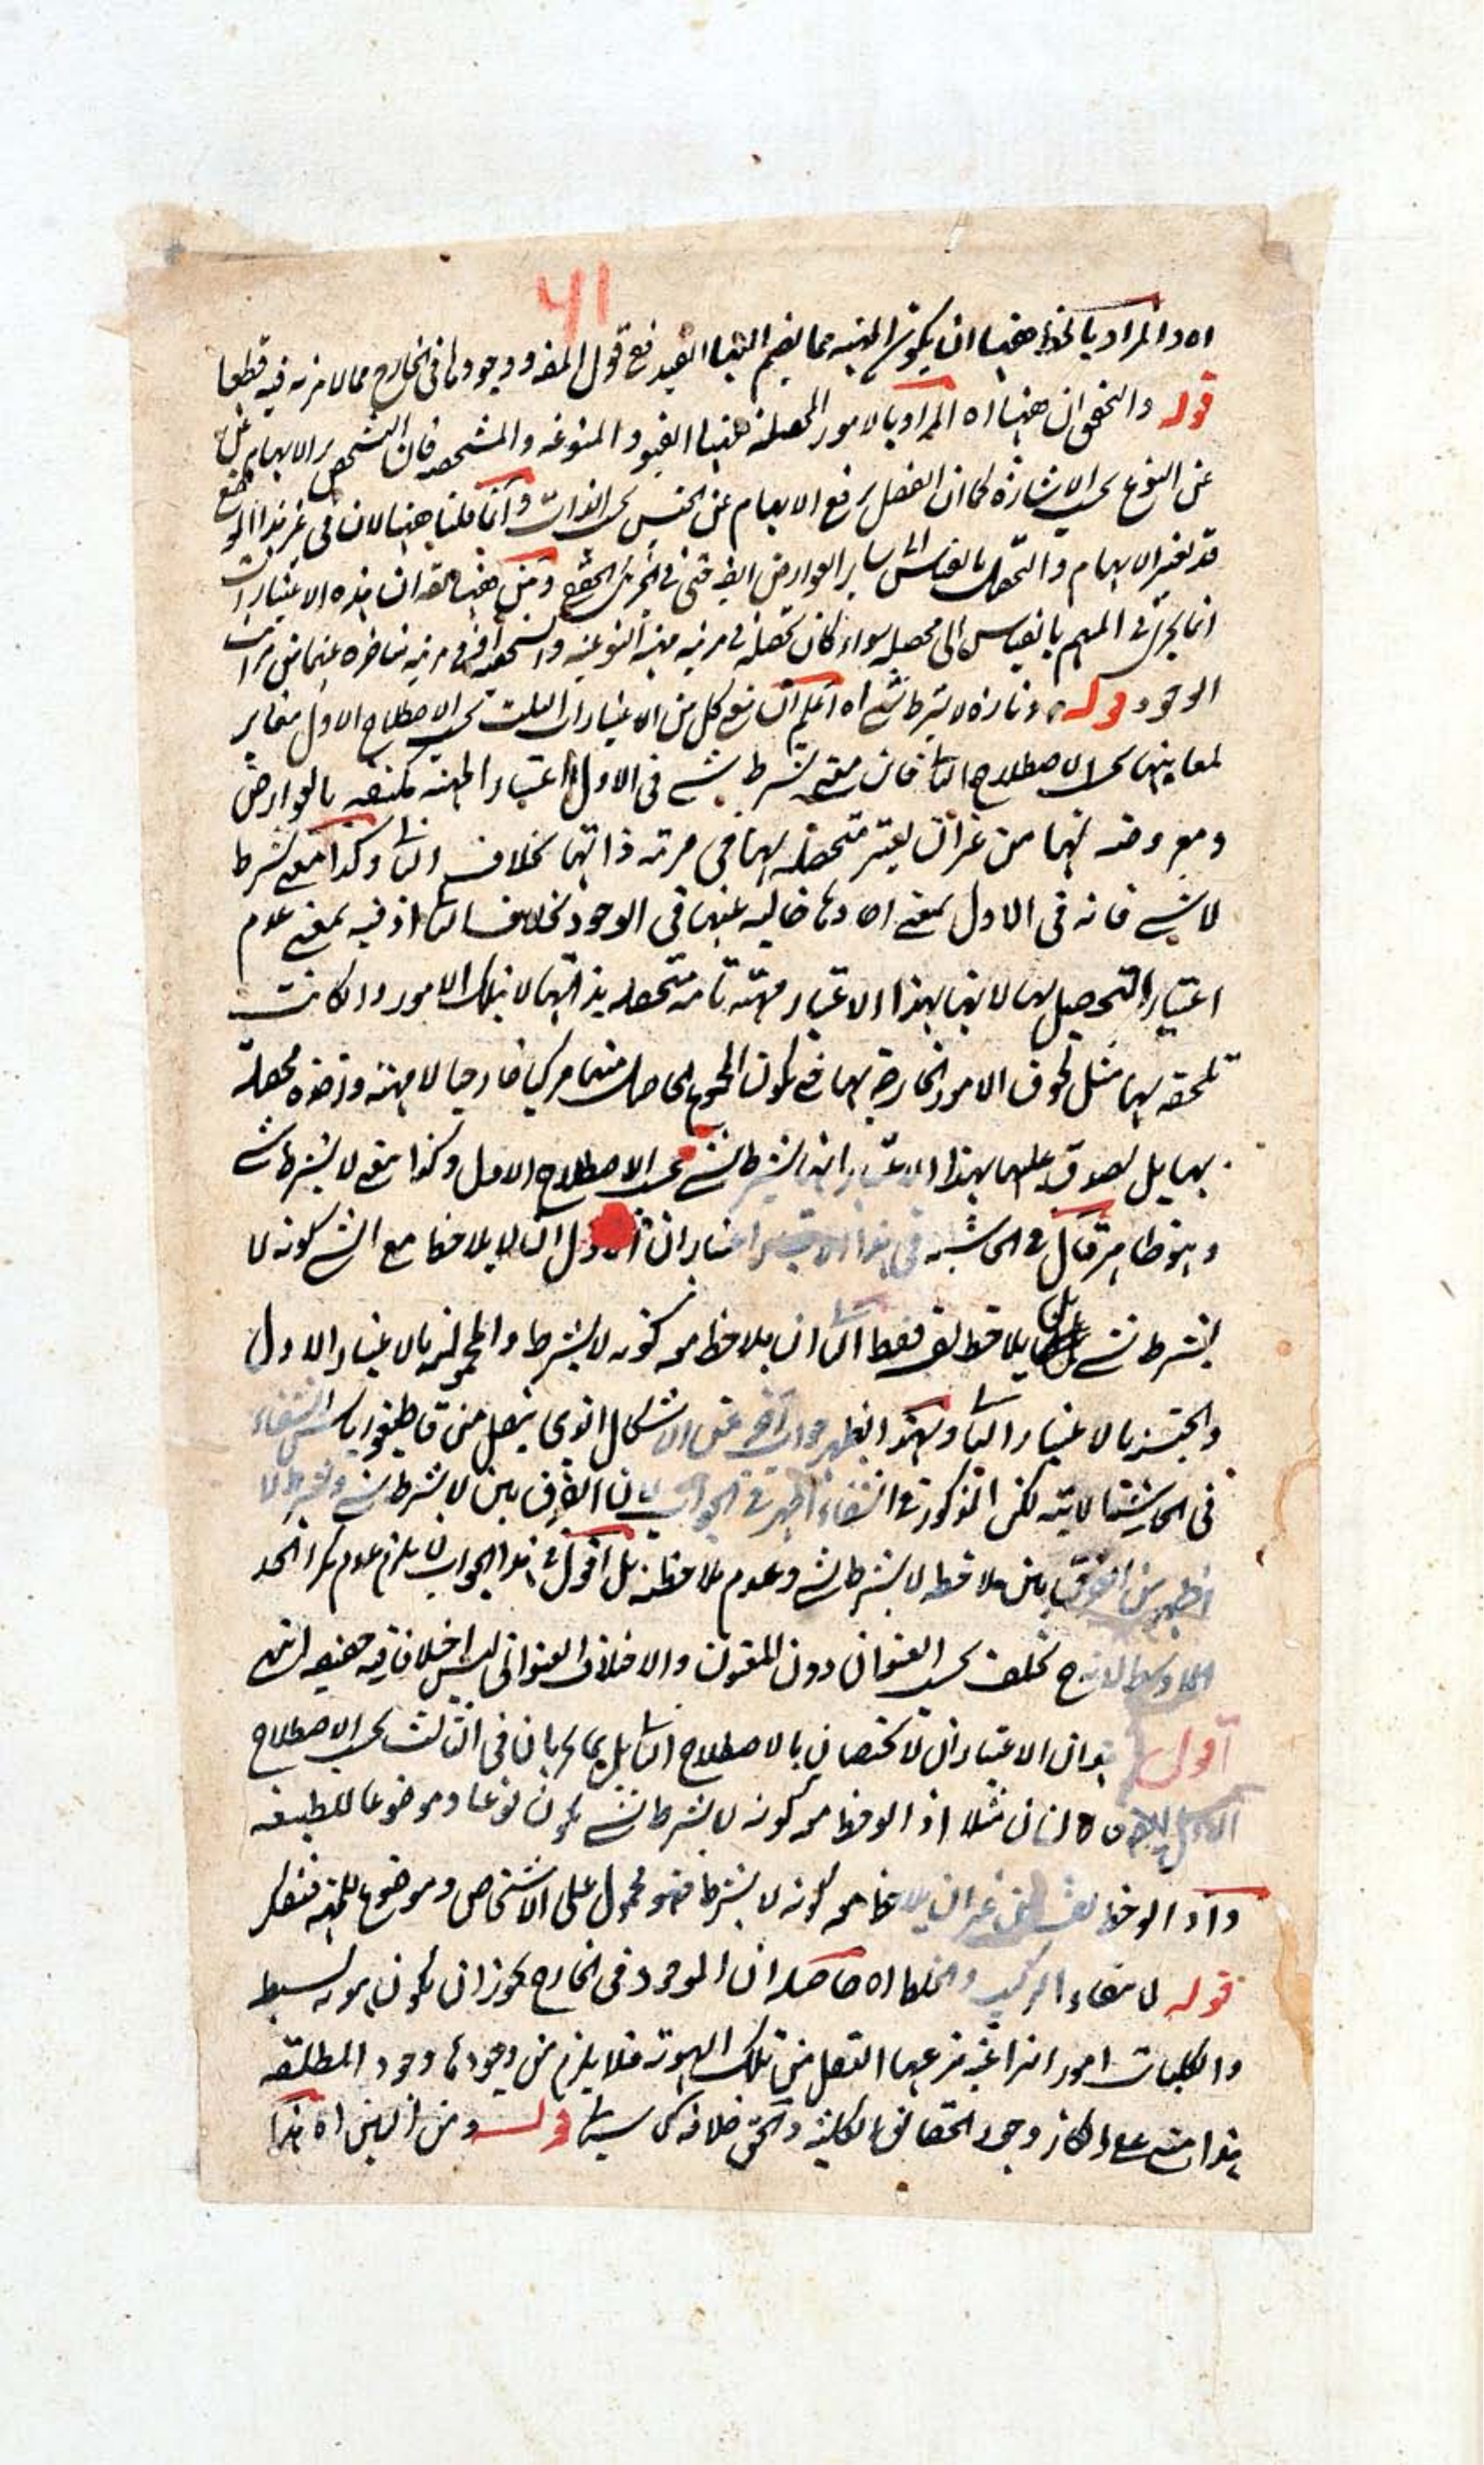 ٦١
اه والمراد بالخلط ههنا ان يكون المهية مما يضم اليها القيد فع قول المص ووجودها فى الخارج مما لا مرية فيه قطعا
قوله والتحقق ان ههنا اه المراد بالامور المحصلة ههنا القيود المنوعة والمشخصة فان التشخص ير الابهام
عن النوع بحسب الاشارة كما ان الفصل يرفع الابهام عن الجنس بحسب الذات وانما قلنا ههنا لان فى غير هذا الموضع
قد يعتبر الابهام والتحصل بالقياس الى ساير العوارض ايضا حتى فى الجزئى الحقيقى ومن ههنا ان هذه الاعتبارات
انما يجرى فى المبهم بالقياس الى محصله سواء كان تحصله فى مرتبة مهية النوعية او فى مرتبة متاخرة عنها من مراتب
الوجود قوله وتارة لا بشرط شئ اه اعلم ان معنى كل من الاعتبارات الثلث بحسب الاصطلاح الاول مغاير
لمعانيها بحسب الاصطلاح الثانى فان معنى بشرط شئ فى الاول اعتبار المهية مكتنفة بالعوارض
ومعروضة لها من غير ان يعتبر متحصلة بها فى مرتبة ذاتها بخلاف الثانى وكذا معنى بشرط
لا شئ فانه فى الاول بمعنى اخذها خالية عنها فى الوجود بخلاف الثانى اذ فيه بمعنى عدم
اعتبار التحصيل بها لانها بهذا الاعتبار مهية تامة متحصلة بذاتها لا بتلك الامور وان كانت
تلحقه بها مثل لحوق الامور الخارجة بها فيكون المجموع الحاصل منهما مركبا خارجيا لا مهية واحدة محصلة
بها بل يصدق عليها بهذا الاعتبار انها بشرط شئ بحسب الاصطلاح الاول وكذا معنى لا بشرط شئ
وهو ظاهر قال فى الحاشية فى هذا اعتباران الاول ان لا يلاحظ مع الشئ كونه لا
بشرط شئ بل يلاحظ نفسه فقط الثانى ان يلاحظ مع كونه لا بشرط والحمولية بالاعتبار الاول
والجنسية بالاعتبار الثانى وبهذا يظهر جواب آخر عن الاشكال الذى ينقل من قاطيغورياس الشفاء
فى الحاشية لكن المذكور فى الشفاء اظهر فى الجواب لان الفرق بين لا بشرط شئ وبشرط لا
اظهر من الفرق بين ملاحظة لا بشرط شئ وعدم ملاحظته بل اقول فى هذا الجواب لا يلزم عدم تكرار الحد
الاوسط لانه ح يختلف بحسب العنوان دون المعنون والاختلاف العنوانى ليس اختلافا فيه حقيقة انتهى
اقول هذان الاعتباران لا يختصان بالاصطلاح الثانى بل يجريان فى الثالث بحسب الاصطلاح
الاول ايضا فالانسان مثلا اذا لوحظ مع كونه لا بشرط شئ يكون نوعا وموضوعا للطبيعة
واذا لوحظ نفسه من غير ان يلاحظ معه كونه لا بشرط فهو محمول على الاشخاص وموضوع للمهملة فتفكر
قوله لانتفاء التركيب والخلط اه حاصله ان الموجود فى الخارج يجوز ان يكون هوية بسيطة
والكليات امور انتزاعية ينتزعها العقل من تلك الهوية فلا يلزم من وجودها وجود المطلقة
هذا مبنى على انكار وجود الحقائق الكلية والحق خلافه كما سياتى قوله ومن البين اه هذا